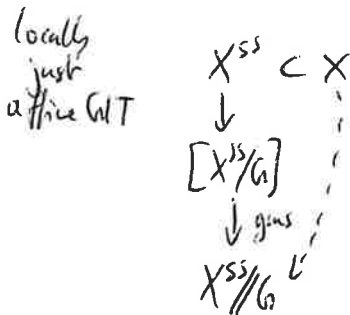 locally
just
affine GIT
X^{ss} ⊂ X
↓
[X^{ss}/G]
↓ gms
X^{ss}//G